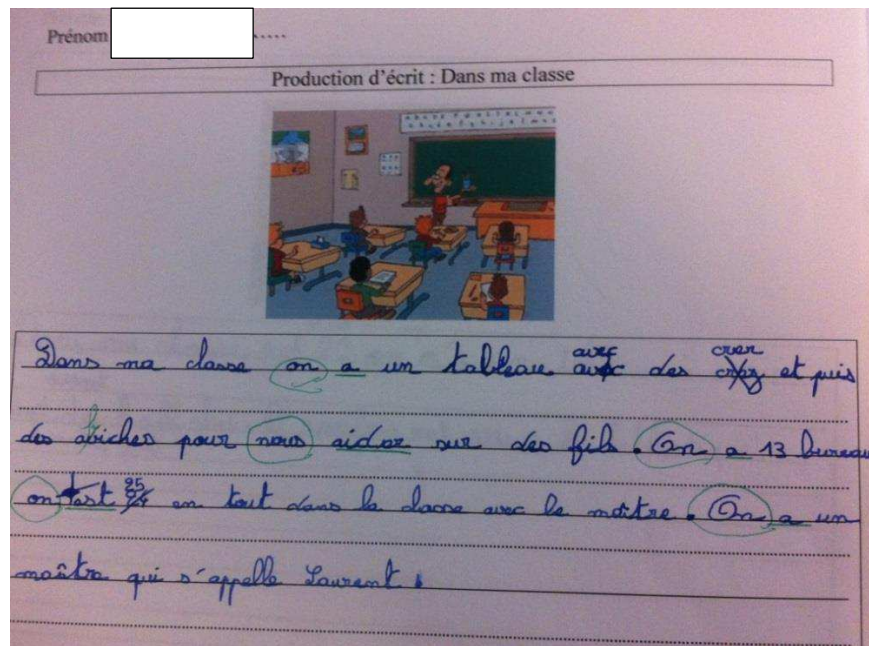 Prénom .....
Production d'écrit : Dans ma classe
avec crer
Dans ma classe on a un tableau avec des et puis
des afiches pour nous aider sur des fils. On a 13 bureau
25
on est en tout dans la classe avec le maître. On a un
maître qui s'appelle Laurent.